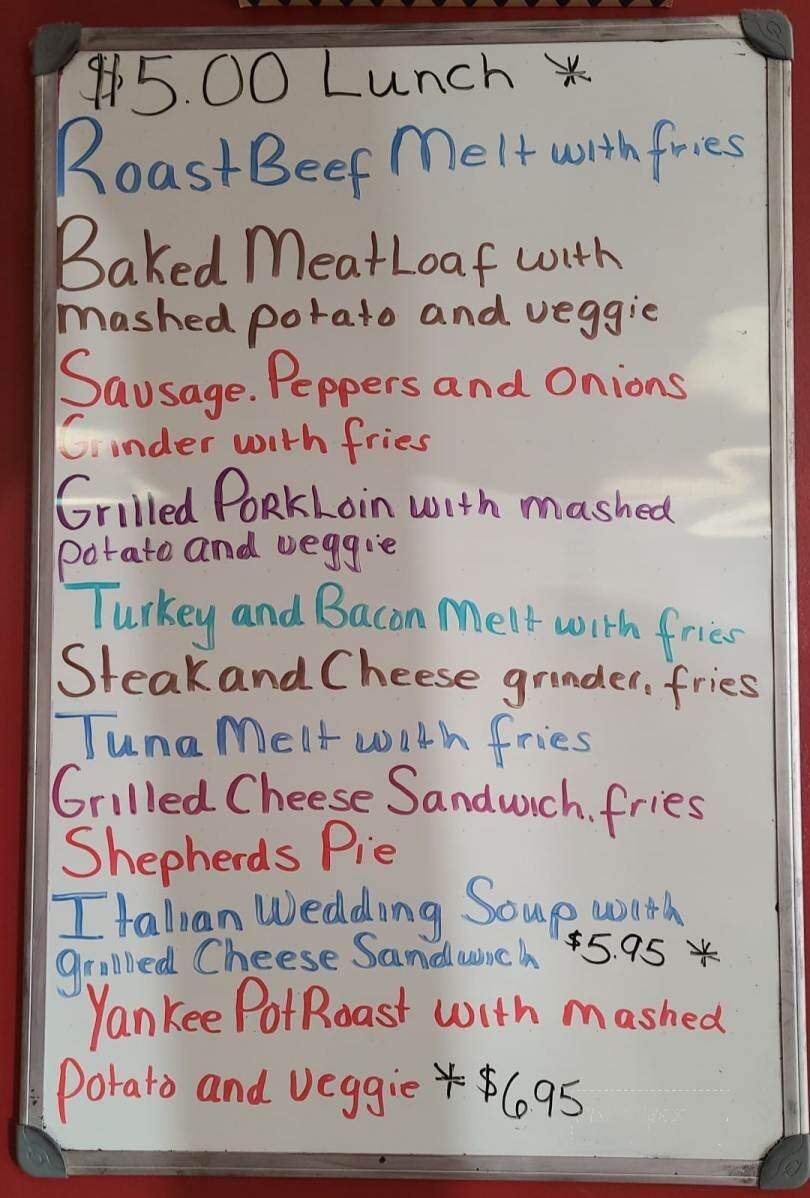 $5.00 Lunch *
Roast Beef Melt with fries
Baked MeatLoaf with
mashed potato and veggie
Sausage. Peppers and Onions
Grinder with fries
Grilled PorkLoin with mashed
potato and veggie
Turkey and Bacon Melt with fries
Steak and Cheese grinder. fries
Tuna Melt with fries
Grilled Cheese Sandwich. fries
Shepherds Pie
Italian Wedding Soup with
grilled Cheese Sandwich $5.95 *
Yankee Pot Roast with mashed
Potato and Veggie * $6.95